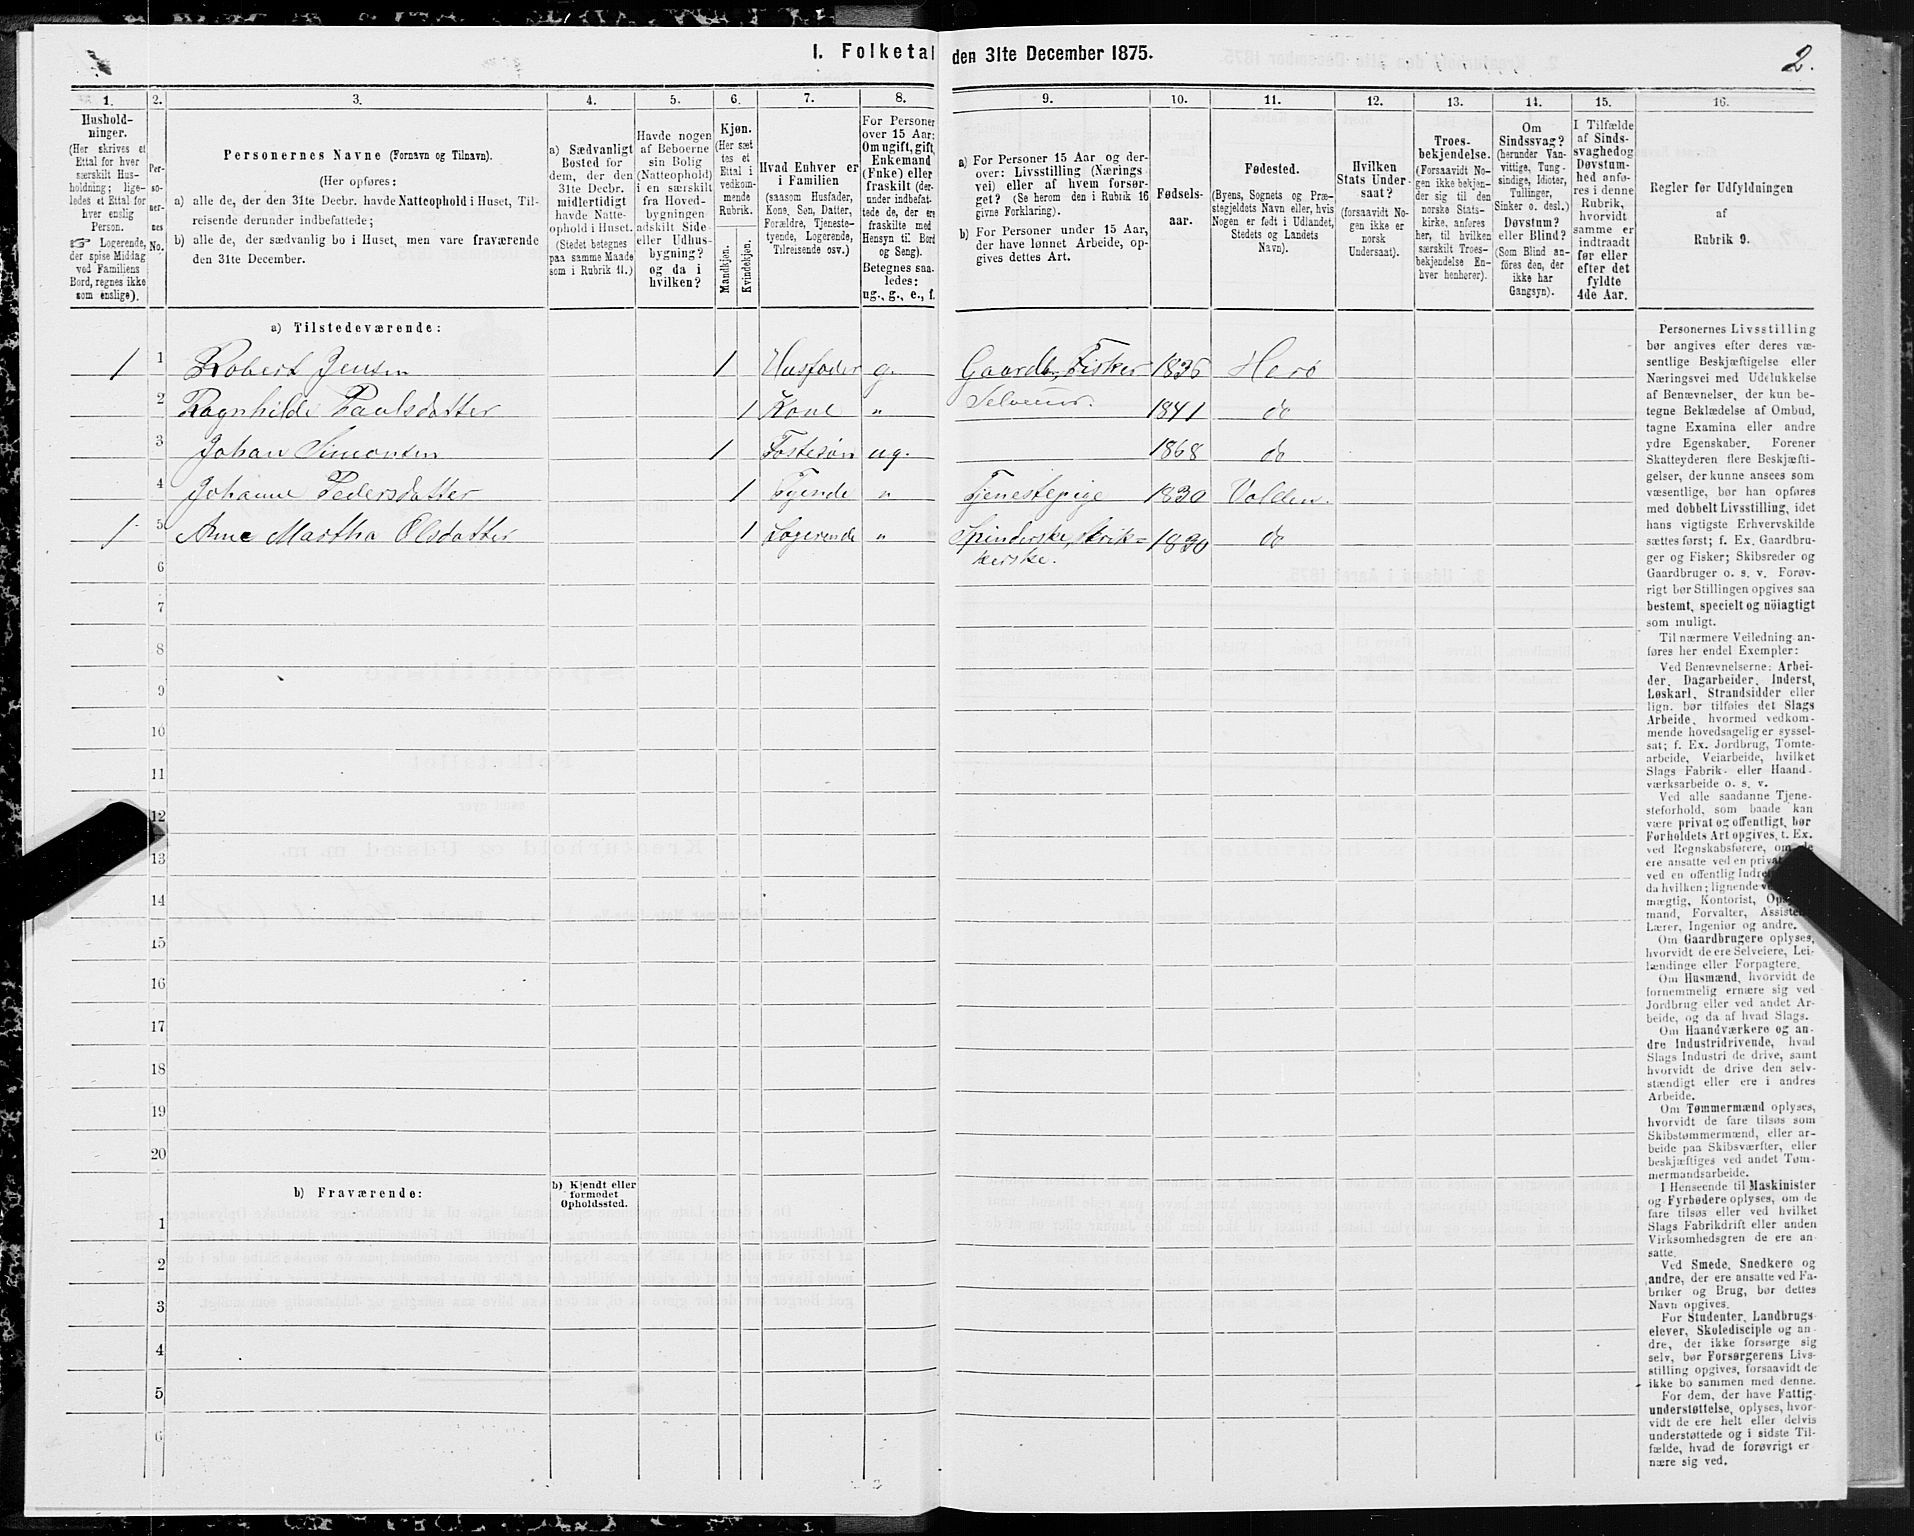 I. Folketal den 31te December 1875.
2.
1.
2.
3.
4.
5.
6.
7.
8.
9.
10.
11.
12.
13.
14.
15.
16.
Hushold-
ninger.
(Her skrives et
Ettal for hver
særskilt Hus-
holdning; lige-
ledes et Ettal for
hver enslig
Person.
☞ Logerende,
der spise Middag
ved Familiens
Bord, regnes ikke
som enslige).
Per-
so-
ner-
nes
No.
Personernes Navne (Fornavn og Tilnavn).
(Her opføres:
a) alle de, der den 31te Decbr. havde Natteophold i Huset, Til-
reisende derunder indbefattede;
b) alle de, der sædvanlig bo i Huset, men vare fraværende
den 31te December.
a) Sædvanligt
Bosted for
dem, der den
31te Decbr.
midlertidigt
havde Natte-
ophold i Huset.
(Stedet betegnes
paa samme Maade
som i Rubrik 11.)
Havde nogen
af Beboerne
sin Bolig
(Natteophold)
i en særskilt
fra Hoved-
bygningen
adskilt Side-
eller Udhus-
bygning?
og da i
hvilken?
Kjøn.
(Her sæt
tes et
Ettal i
vedkom-
mende
Rubrik.
Mandkjøn.
Kvindekjøn.
Hvad Enhver er
i Familien
(saasom Husfader,
Kone, Søn, Datter,
Forældre, Tjeneste-
tyende, Logerende,
Tilreisende osv.)
For Personer
over 15 Aar:
Om ugift, gift,
Enkemand
(Enke) eller
fraskilt (der-
under indbefat-
tede de, der ere
fraskilte med
Hensyn til Bord
og Seng).
Betegnes saa-
ledes:
ug., g., e., f.
a) For Personer 15 Aar og der-
over: Livsstilling (Nærings
vei) eller af hvem forsør-
get? (Se herom den i Rubrik 16
givne Forklaring).
b) For Personer under 15 Aar,
der have lønnet Arbeide, op-
gives dettes Art.
Fødsels-
aar.
Fødested.
(Byens, Sognets og Præ-
stegjeldets Navn eller, hvis
Nogen er født i Udlandet,
Stedets og Landets
Navn).
Hvilken
Stats Under-
saat?
(forsaavidt No-
gen ikke er
norsk
Undersaat).
Troes-
bekjendelse.
(Forsaavidt No-
gen ikke bekjen-
der sig til den
norske Stats-
kirke, anføres
her, til hvilken
særskilt Troes-
bekjendelse En-
hver henhører).
Om
Sindssvag?
(herunder Van-
vittige, Tung-
sindige, Idioter,
Tullinger,
Sinker o. desl.)
Døvstum?
eller Blind?
(Som Blind an-
føres den, der
ikke har
Gangsyn).
I Tilfælde
af Sinds-
svaghedog
Døvstum-
hed anfø-
res i denne
Rubrik,
hvorvidt
samme er
indtraadt
før eller
efter det
fyldte
4de Aar.
Regler for Udfyldningen
af
Rubrik 9.
a) Tilstedeværende:
1 1 Robert Jensen 1 Husfader g. Gaardbr, Fisker 1836 Herø
Selveier.
2 Ragnhilde Paulsdatter 1 Kone " 1841 do
3 Johan Simonsen 1 Fostesøn ug. 1868 do
4 Johanne Pedersdatter 1 Tyende " Tjenestepige 1830 Volden.
1 5 Ane Martha Olsdatter 1 Logerende " Spinderske, strik- 1830 do
kerske.
6
7
8
9
10
11
12
13
14
15
16
17
18
19
20
b) Fraværende:
b) Kjendt eller
formodet
Opholdssted.
1
2
3
4
5
6
Personernes Livsstilling
bør angives efter deres væ-
sentlige Beskjæftigelse eller
Næringsvei med Udelukkelse
af Benævnelser, der kun be-
tegne Beklædelse af Ombud,
tagne Examina eller andre
ydre Egenskaber. Forener
Skatteyderen flere Beskjæfti-
gelser, der kunne ansees som
væsentlige, bør han opføres
med dobbelt Livsstilling, idet
hans vigtigste Erhvervskilde
sættes først; f. Ex. Gaardbru-
ger og Fisker; Skibsreder og
Gaardbruger o. s. v. Forøv-
rigt bør Stillingen opgives saa
bestemt, specielt og nöiagtigt
som muligt.
Til nærmere Veiledning an-
føres her endel Exempler:
Ved Benævnelserne: Arbei-
der, Dagarbeider, Inderst,
Løskarl, Strandsidder eller
lign. bør tilføies det Slags
Arbeide, hvormed vedkom-
mende hovedsagelig er syssel-
sat; f. Ex. Jordbrug, Tomte-
arbeide, Veiarbeide, hvilket
Slags Fabrik- eller Haand-
værksarbeide o. s. v.
Ved alle saadanne Tjene-
steforhold, som baade kan
være privat og offentligt, bør
Forholdets Art opgives, t. Ex.
ved Regnskabsførere, om de
ere ansatte ved en privat
ved en offentlig
da hvilken; lignende
mægtig, Kontorist,
mand, Forvalter,
Lærer, Ingeniør og andre.
Om Gaardbrugere oplyses,
hvorvidt de ere Selveiere, Lei-
lændinge eller Forpagtere.
Om Husmænd, hvorvidt de
fornemmelig ernære sig ved
Jordbrug eller ved andet Ar-
beide, og da af hvad Slags.
Om Haandværkere og an-
dre Industridrivende, hvad
Slags Industri de drive, samt
hvorvidt de drive den selv-
stændigt eller ere i andres
Arbeide.
Om Tømmermænd oplyses,
hvorvidt de fare tilsøs som
Skibstømmermænd, eller ar-
beide paa Skibsværfter, eller
beskjæftiges ved andet Tøm-
mermandsarbeide.
I Henseende til Maskinister
og Fyrbødere oplyses, om de
fare tilsøs eller ved hvilket
Slags Fabrikdrift eller anden
Virksomhedsgren de ere an-
satte.
Ved Smede, Snedkere og
andre, der ere ansatte ved Fa-
briker og Brug, bør dettes
Navn opgives.
For Studenter, Landbrugs-
elever, Skoledisciple og an-
dre, der ikke forsørge sig
selv, bør Forsørgerens Livs-
stilling opgives, forsaavidt de
ikke bo sammen med denne.
For dem, der have Fattig-
understøttelse, oplyses, hvor-
vidt de ere helt eller delvis
understøttede og i sidste Til-
fælde, hvad de forøvrigt er
nære sig ved.